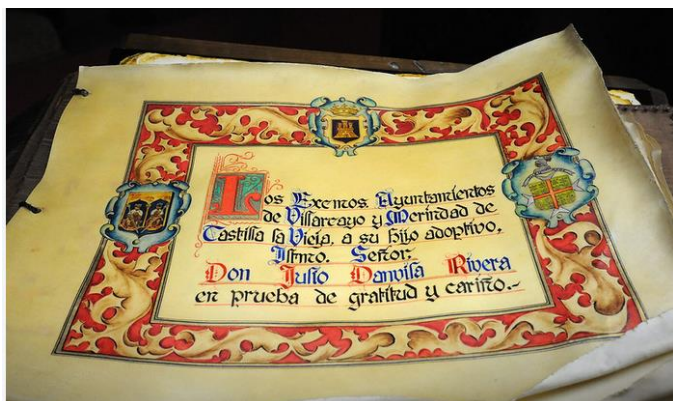 Los Exemos. Ayuntamientos
de Villarcayo y Merindad de
Castilla la Vieja, a su hijo adoptivo,
Iltmo. Señor:
Don Julio Danvila Rivera
en prueba de gratitud y cariño.-